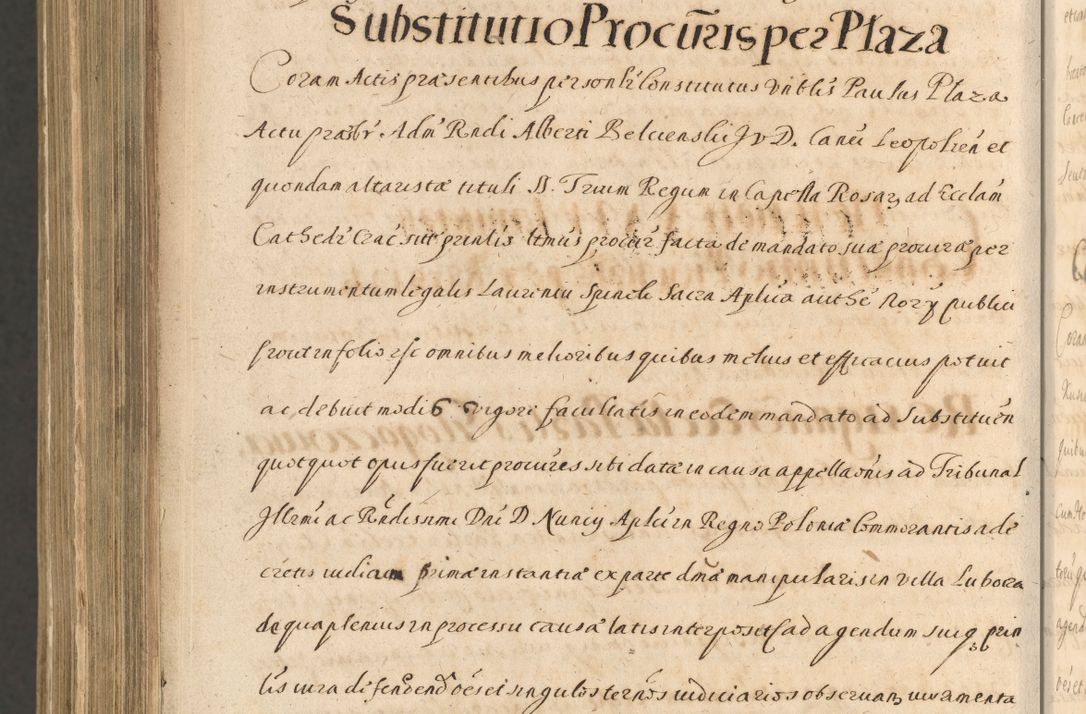 Substitutio Procuris per Płaza
Coram Actis præsentibus personlr Constitutus Vnblis Paulus Płaza
Actu præsbr Admi Rndi Alberti Belcienskij JVD. Canci Leopolien et
quondam altaristæ tituli SS. Trium Regum in Capella Rosarz ad Ecclam
Cathedr Crac sitt prinlis ltmus procur facta de mandato suæ procuræ per
instrumentum legalis Laurentii Spinek Sacra Aplica authe Nory publici
prout in folio rsc omnibus melioribus quibus melius et efficacius potuit
ac debuit modis vigore facultatis in eodem mandato ad Substituen
quotquot opus fuerit procures sibi datæ in causa appellaonis ad Tribunal
Jllrmi ac Rndissimi Dni D Nuncij Aplci in Regno Poloniæ Commorantis a de
cretis iudicum primæ instantiæ ex parte dmæ manipularis in villa Lubora
de qua plenius in processu causæ latis interposit ad agendum suiq prin
lis iura defendend oes et singulos ternos iudiciarios observanz iuramenta